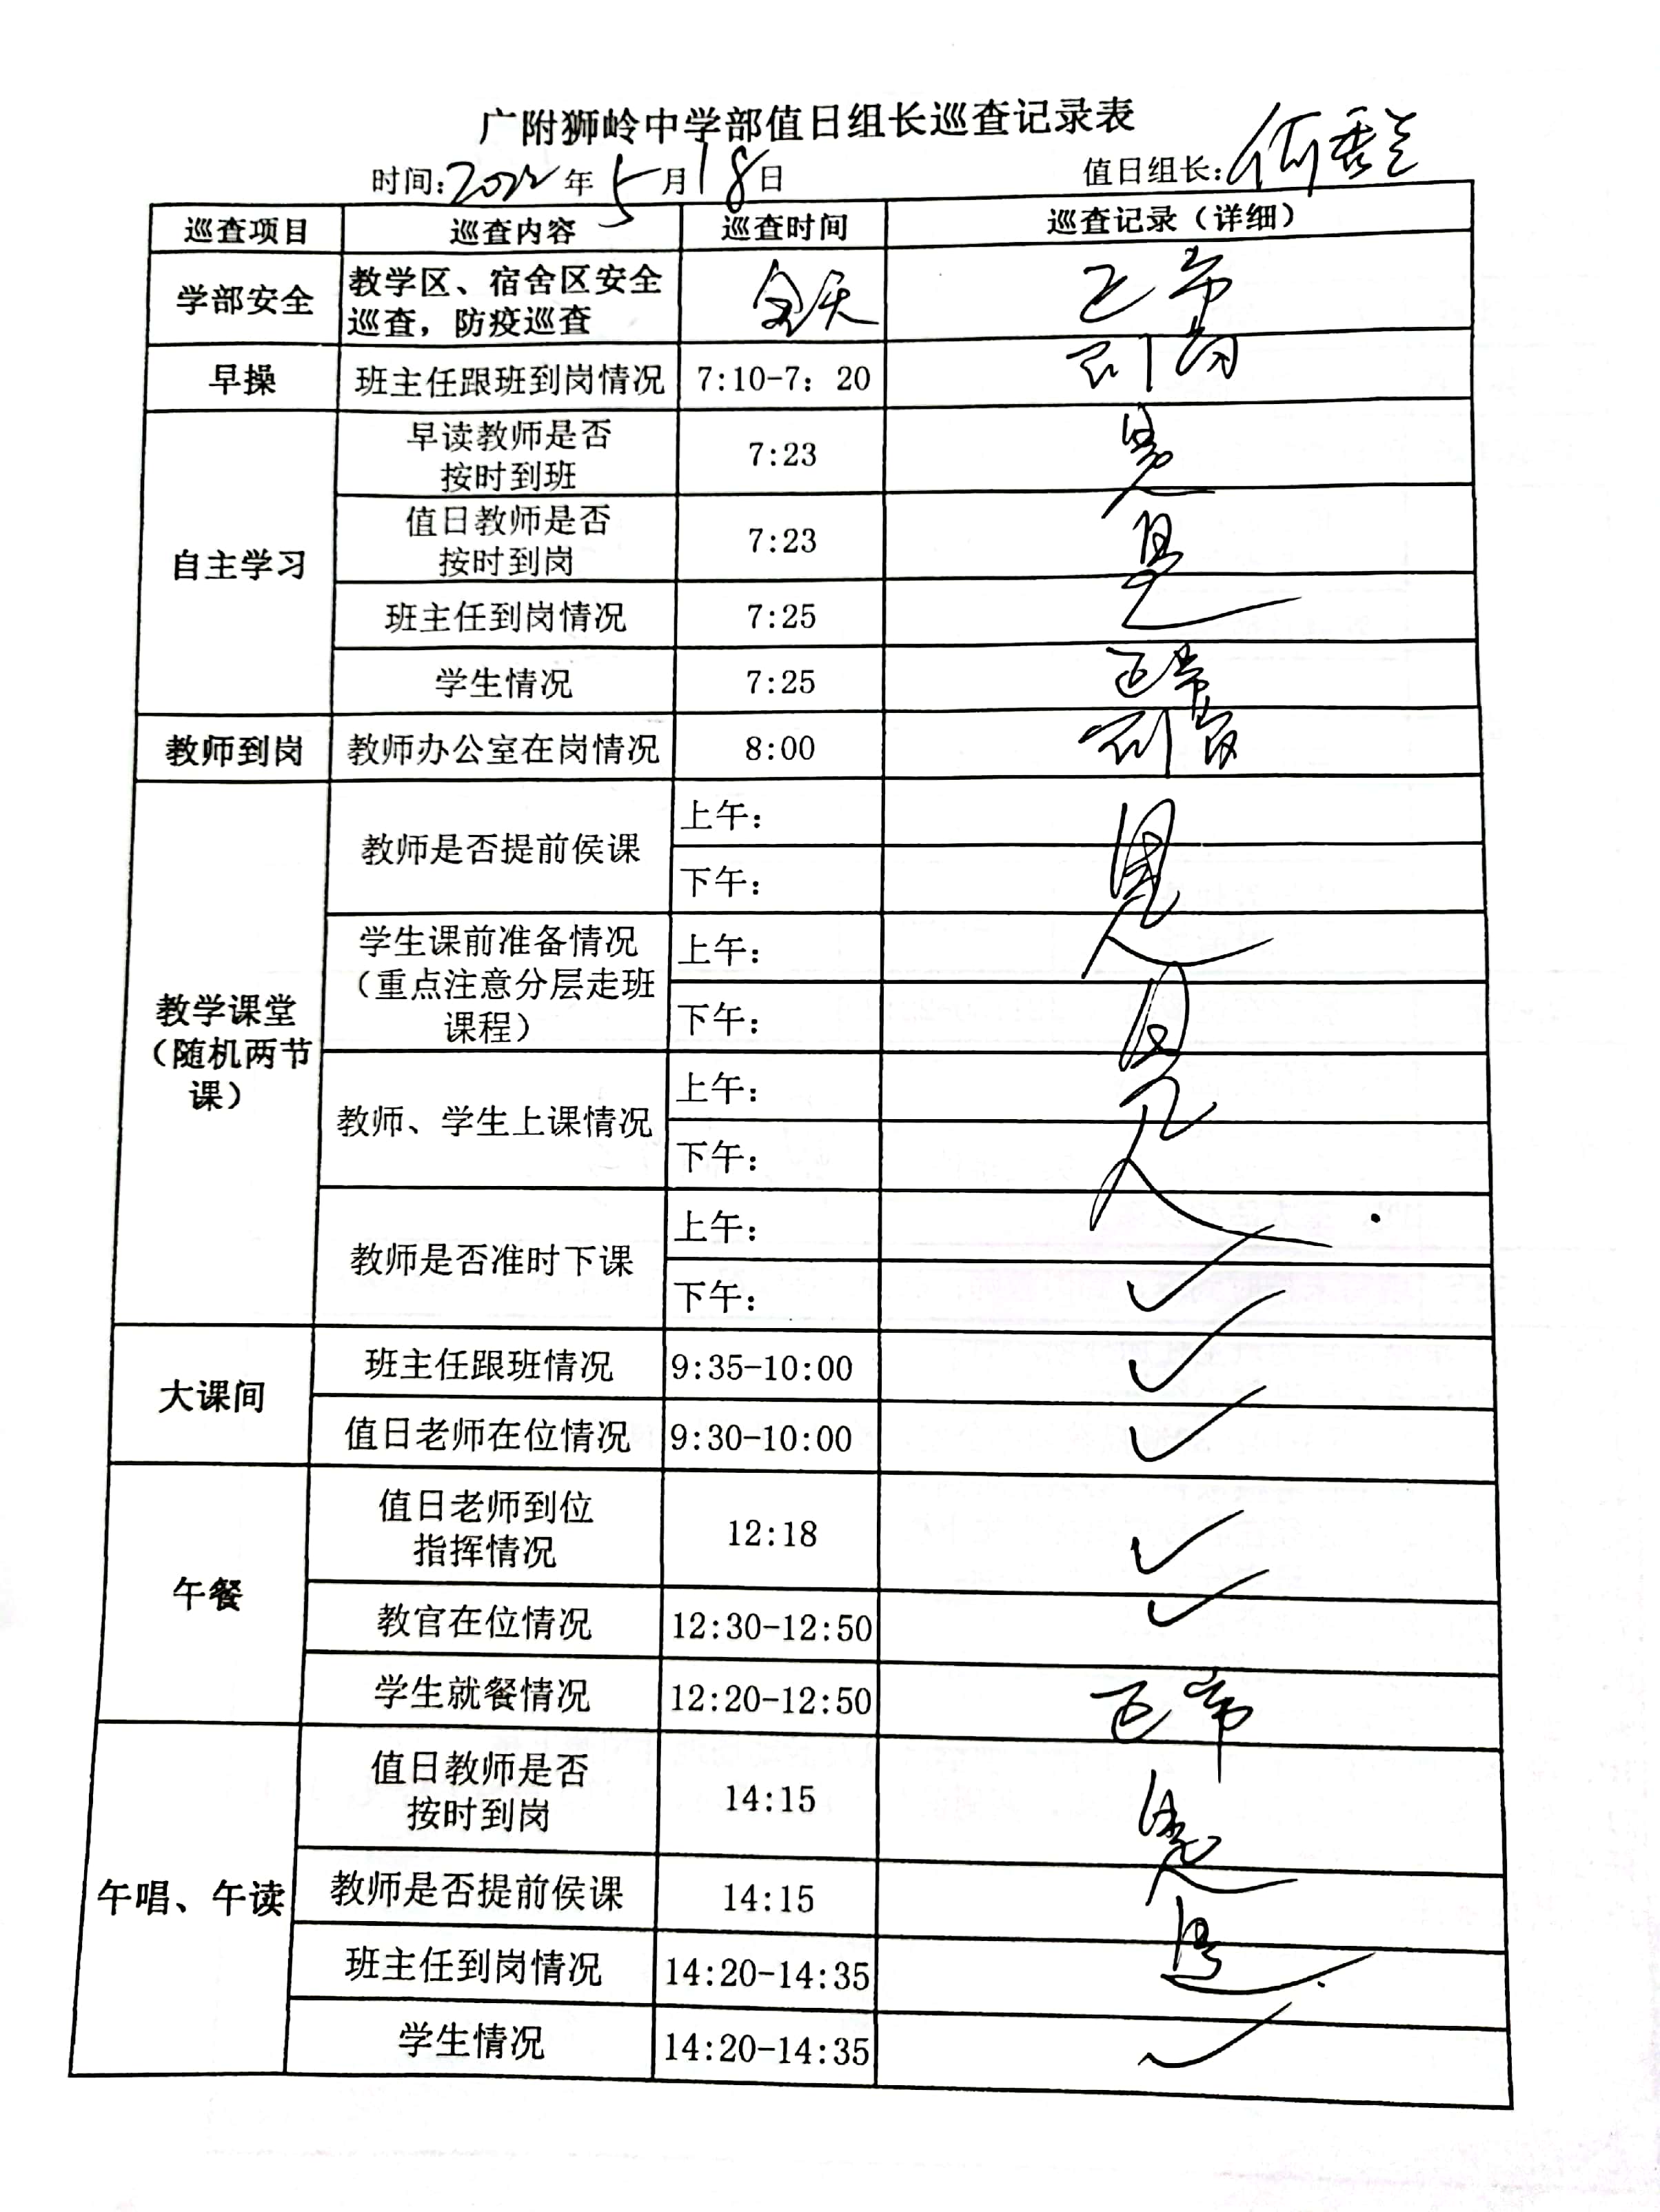 广附狮岭中学部值日组长巡查记录表
时间:2022年5月18日 值日组长:何秀兰
巡查项目 巡查内容 巡查时间 巡查记录（详细）
学部安全 教学区、宿舍区安全 全天 正常
巡查，防疫巡查
早操 班主任跟班到岗情况 7:10-7：20 到岗
自主学习
早读教师是否 7:23 是
按时到班
值日教师是否 7:23 是
按时到岗
班主任到岗情况 7:25
学生情况 7:25 正常
教师到岗 教师办公室在岗情况 8:00 到岗
教学课堂
（随机两节
课）
教师是否提前侯课 上午： 是
下午：
学生课前准备情况 上午：
（重点注意分层走班
课程） 下午： 是
教师、学生上课情况 上午：
下午：
教师是否准时下课 上午：
下午： ✓
大课间
班主任跟班情况 9:35-10:00 ✓
值日老师在位情况 9:30-10:00 ✓
午餐
值日老师到位 12:18 ✓
指挥情况
教官在位情况 12:30-12:50 ✓
学生就餐情况 12:20-12:50 正常
午唱、午读
值日教师是否 14:15 是
按时到岗
教师是否提前侯课 14:15 是
班主任到岗情况 14:20-14:35
学生情况 14:20-14:35 ✓